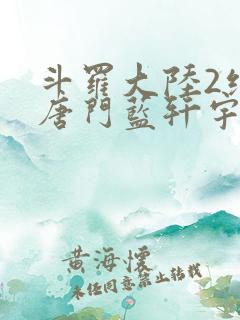 斗羅大陸2
唐門藍軒宇
黃海懷
未經同意禁止轉載